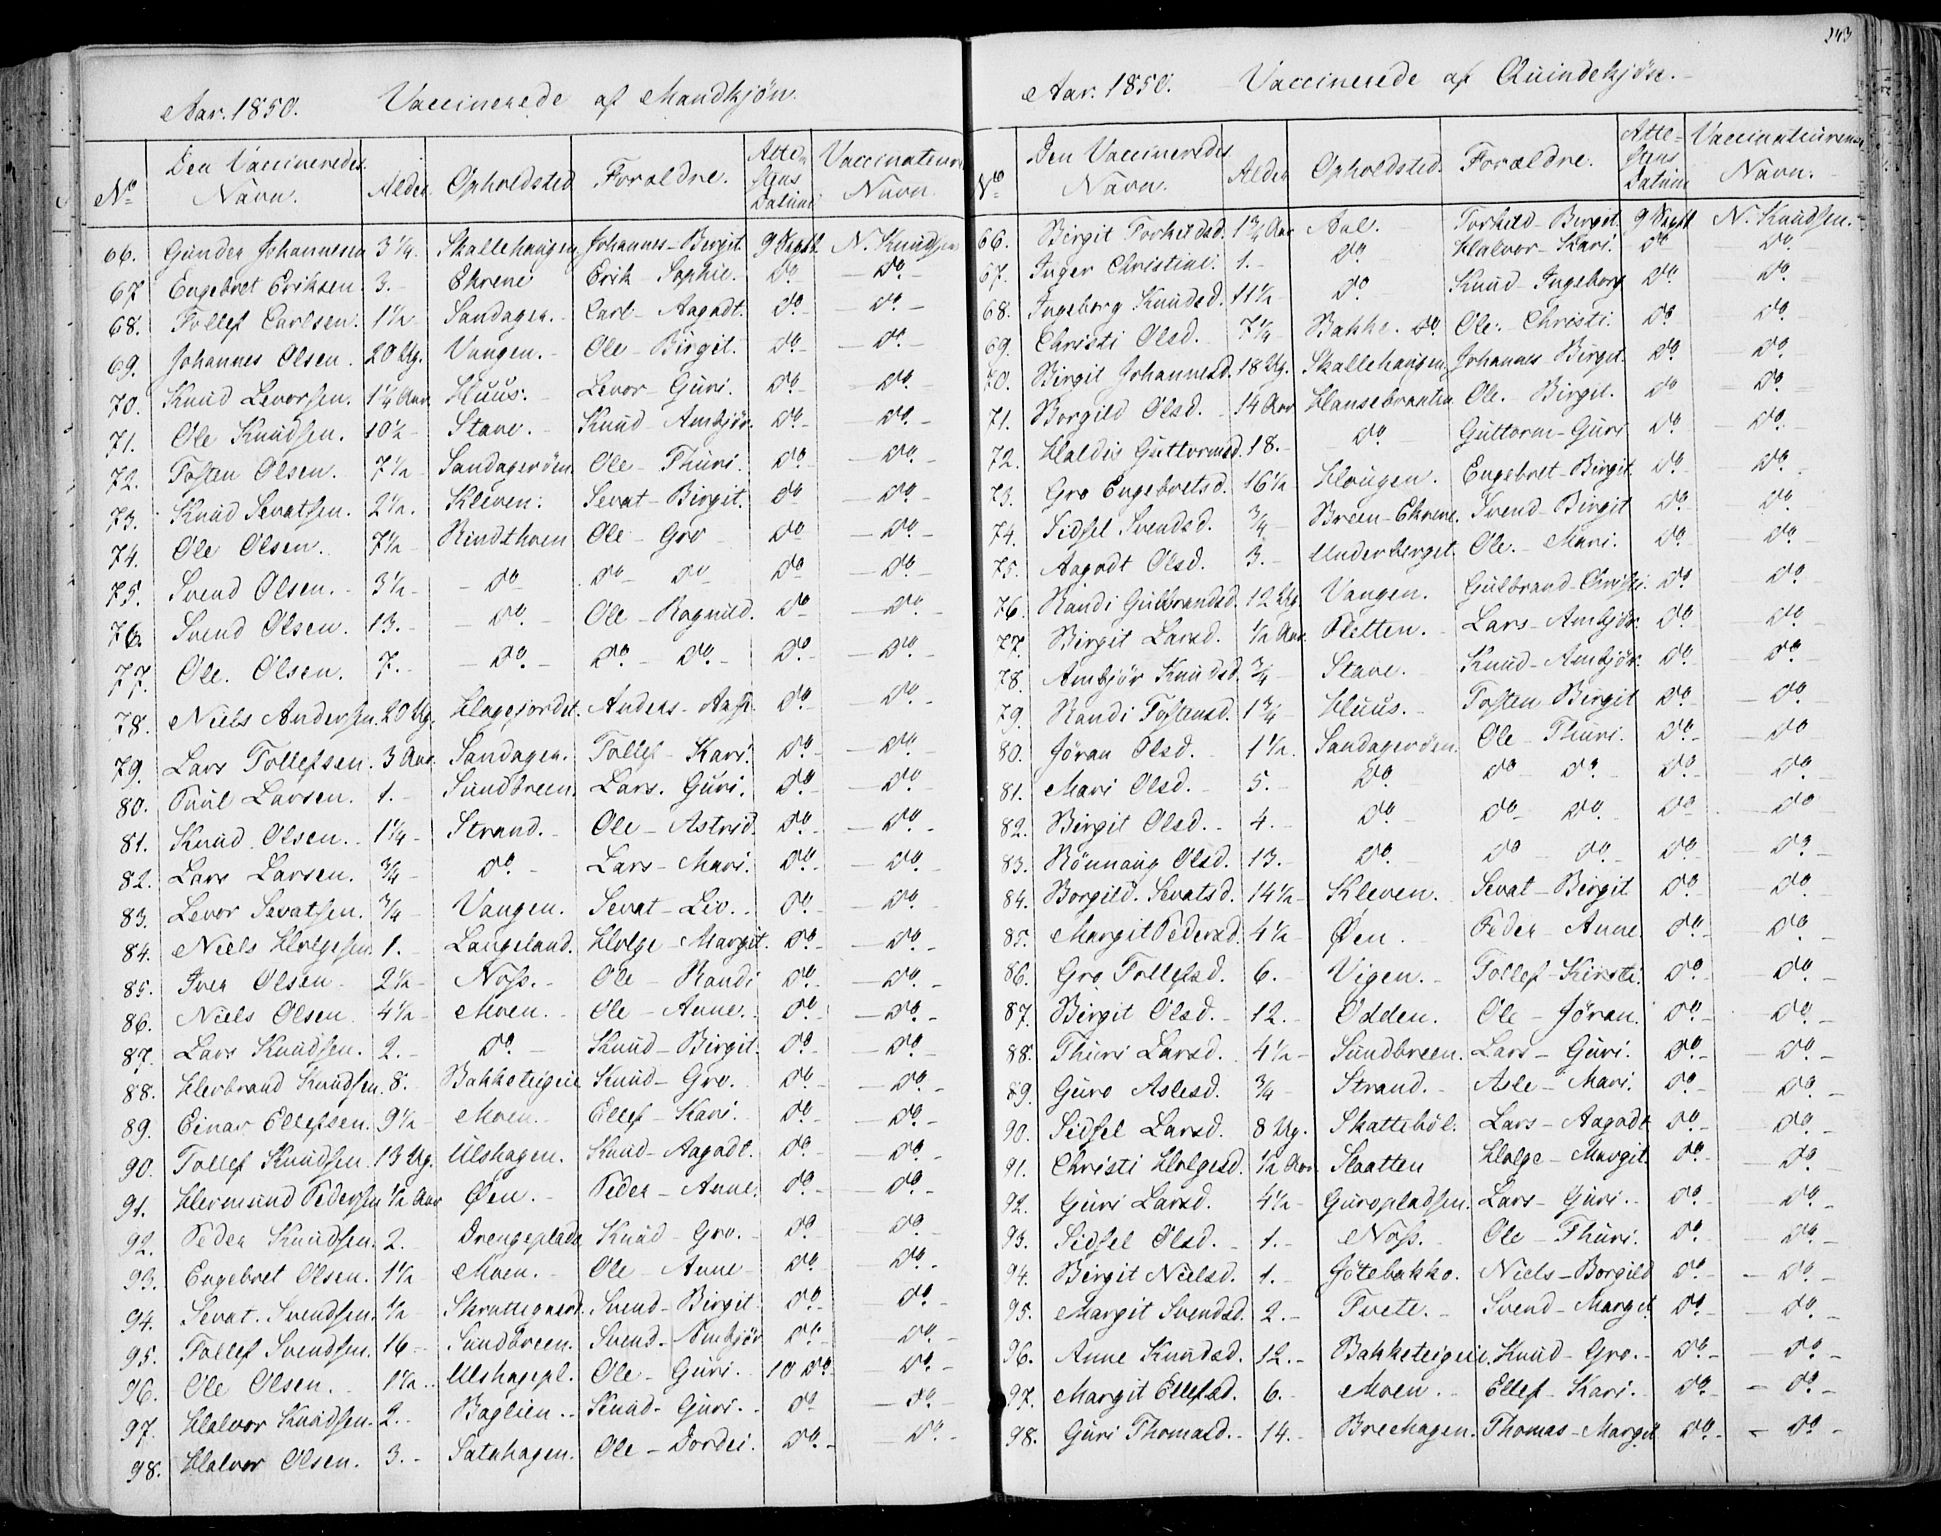 243
Aar. 1850. Vaccinerede af Mandkjøn.
No Den Vaccineredes Navn. Alder Opholdsted Forældre. Attestens Datum Vaccinateurens Navn.
66. Gunder Johannesen 3 1/4. Skallehaugen Johannes - Birgit. 9 Septb. N. Knudsen
67 Engebret Eriksen 3. Ehrene Erik - Sophie. do do
68. Tollef Carlsen. 1 1/2 Sandagen. Carl - Aagodt. do do
69. Johannes Olsen. 20 Ug. Vangen. Ole - Birgit. do do
70. Knud Levorsen. 1 1/4 Aar. Huus. Levor - Guri. do do
71. Ole Knudsen. 10 1/2 Stave. Knud - Ambjør. do do
72. Tosten Olsen. 7 1/2 Sandagerøen Ole - Thuri. do do
73. Knud Sevatsen. 2 1/2. Kleven. Sevat - Birgit. do do
74. Ole Olsen. 7 1/2 Rindthoen Ole - Gro do do
75. Svend Olsen. 3 1/2 do do do do do
76. Svend Olsen. 13. do Ole - Ragnild. do do
77. Ole Olsen. 7. do do do do do
78. Niels Andersen. 20 Ug. Hagejordet. Anders - Aase. do do
79. Lars Tollefsen. 3 Aar. Sandagen. Tollef - Kari. do do
80. Paul Larsen. 1. Sundbreen. Lars. Guri. do do
81. Knud Olsen. 1 1/4 Strand. Ole - Astrid. do do
82. Lars Larsen. 3/4 do Lars - Mari. do do
83. Levor Sevatsen. 3/4 Vangen. Sevat - Liv. do do
84. Niels Holgesen. 1. Langeland. Holge - Margit. do do
85. Iver Olsen 2 1/2 Noss. Ole - Randi do do
86. Niels Olsen 4 1/2 Moen. Ole - Anne. do do
87. Lars Knudsen. 2. do Knud - Birgit. do do
88. Herbrand Knudsen. 8. Bakketeigen Knud - Gro. do do
89. Einar Ellefsen. 9 1/2 Moen. Ellef - Kari. do do
90. Tollef Knudsen. 13 Ug. Ulshagen. Knud - Aagodt. do do
91. Hermund Pedersen 1/2 Aar Øen. Peder - Anne. do do
92. Peder Knudsen. 2. Drengeplads Knud - Gro. do do
93. Engebret Olsen. 1 1/2 Moen. Ole - Anne do do
94. Sevat. Svendsen. 1/2 Skrattegaard. Svend - Birgit do do
95. Tollef Svendsen. 16 Sundbreen. Svend - Ambjør do do
96. Ole Olsen. 1 1/2 Ulshagepl. Ole - Guri. 10 do do
97. Halvor Knudsen. 2. Baglien. Knud - Guri. do do
98. Halvor Olsen. 3. Satahagen. Ole - Dordei. do do
Aar. 1850. Vaccinerede af Quindekjøn.
No Den Vaccineredes Navn. Alder Opholdsted. Forældre. Attestens Datum Vaccinateurens Navn.
66. Birgit Torkildsd. 1 3/4 Aar Aal. Torkild - Birgit. 9 Septb. N. Knudsen.
67. Inger Christine. 1. do Halvor - Kari. do do
68. Ingeborg Knudsd. 11 1/2 do Knud - Ingeborg do do
69. Christi Olsd. 7 1/4 Bakke. do Ole - Christi. do do
70. Birgit Johannesd. 18 Ug. Skallehaugen Johannes - Birgit. do do
71. Borgild Olsd. 14 Aar Hansebraaten Ole - Birgit. do do
72. Haldis Guttormsd. 18. do Guttorm - Guri do do
73. Gro Engebretsd. 16 1/2 Hougen. Engebret - Birgit. do do
74. Sidsel Svendsd. 3/4 Breen - Ehrene. Svend - Birgit do do
75. Aagodt Olsd. 3. Underberget. Ole - Mari. do do
76. Randi Gulbrandsd. 12 Ug. Vangen. Gulbrand - Christi. do do
77. Birgit Larsd. 1/2 Aar. Pletten. Lars - Ambjør. do do
78. Ambjør Knudsd. 3/4 Stave. Knud - Ambjør. do do
79. Randi Tostensd. 1 3/4 Huus. Tosten - Birgit do do
80. Jøran Olsd. 1 1/2. Sandagerøen. Ole - Thuri. do do
81. Mari Olsd. 5. do do do do do
82. Birgit Olsd. 4. do do do do do
83. Rønnaug Olsd. 13. do do do do do
84. Borgild. Sevatsd. 14 1/2 Kleven. Sevat - Birgit do do
85. Margit Pedersd. 4 1/2 Øen. Peder - Anne do do
86. Gro Tollefsd. 6. Vigen. Tollef - Kirsti. do do
87. Birgit Olsd. 12. Odden. Ole - Jøran. do do
88. Thuri Larsd. 4 1/2 Sundbreen. Lars - Guri. do do
89. Guro Aslesd. 3/4 Strand. Asle - Mari. do do
90. Sidsel Larsd. 8 Ug. Skattebøl. Lars - Aagodt do do
91. Christi Holgesd. 1/2 Aar Slaatten Holge - Margit. do do
92. Guri Larsd. 4 1/2 Guropladsen. Lars - Guri. do do
93. Sidsel Olsd. 1. Noss. Ole - Thuri. do do
94. Birgit Nielsd. 1. Gøtebakke. Niels - Borgild do do
95. Margit Svendsd. 2. Tvete. Svend - Margit do do
96. Anne Knudsd. 12. Bakketeigen. Knud - Gro. do do
97. Margit Ellefsd. 6. Moen. Ellef - Kari. do do
98. Guri Thomasd. 14. Breehagen. Thomas - Margit do do